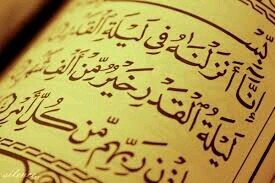 إِنَّا أَنزَلْنَٰهُ فِي لَيْلَةِ ٱلْقَدْرِ
لَيْلَةُ ٱلْقَدْرِ خَيْرٌ مِّنْ أَلْفِ شَهْرٍ
رَبِّهِم مِّن كُلِّ